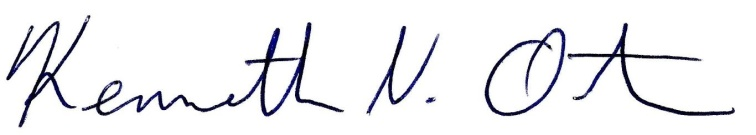 Kenneth N.